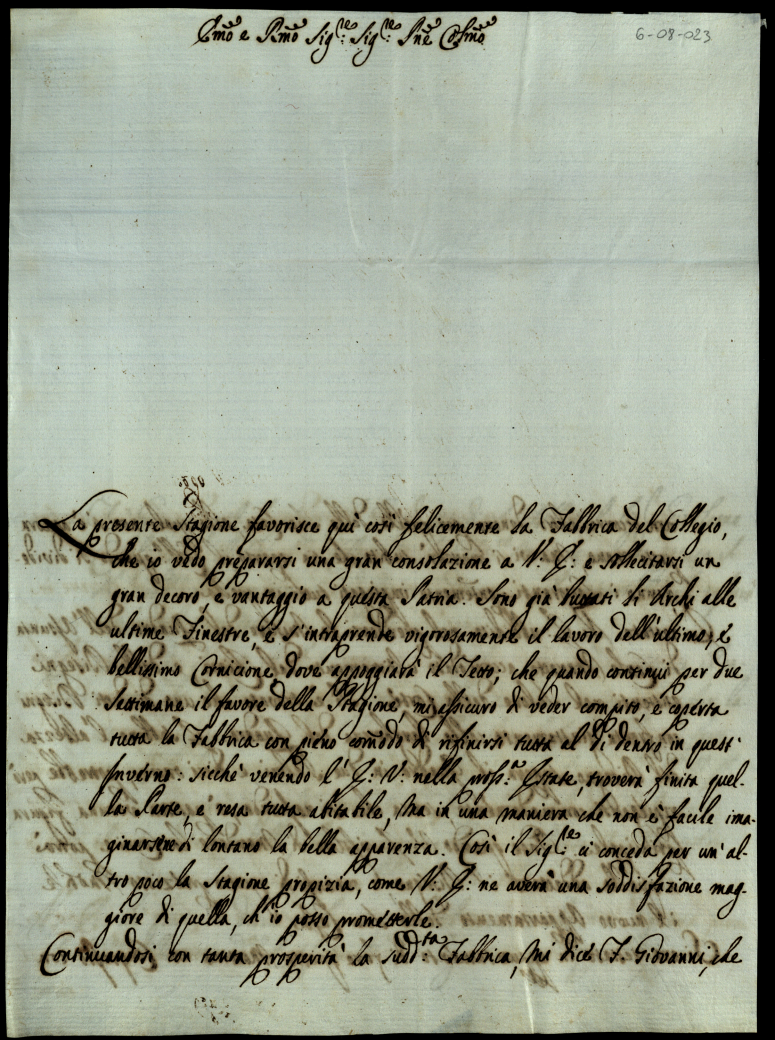 Emo e Rmo Sig:re Sig:re Pne Colmo
6-08-023
La presente Stagione favorisce quì così felicemente la Fabbrica del Collegio,
che io vedo prepararsi una gran consolazione a V: E: e sollecitarsi un
gran decoro, e vantaggio a questa Patria. Sono già buttati li Archi alle
ultime Finestre, e s'intraprende vigorosamente il lavoro dell'ultimo, e
bellissimo Cornicione, dove appoggiarà il Tetto; che quando continui per due
Settimane il favore della Stagione, mi assicuro di veder compito, e coperta
tutta la Fabbrica con pieno comodo di rifinirsi tutta al di dentro in quest'
Inverno: sicchè venendo l'E: V: nella pross:a Estate, troverà finita quel-
la Parte, e resa tutta abitabile, Ma in una maniera che non è facile ima-
ginarsene di lontano la bella apparenza. Così il Sig:re ci conceda per un'al-
tro poco la Stagione propizia, come V: E: ne averà una soddisfazione mag-
giore di quella, ch'io posso prometterle.
Continuandosi con tanta prosperità la sudd:ta Fabbrica, Mi dice F. Giovanni, che